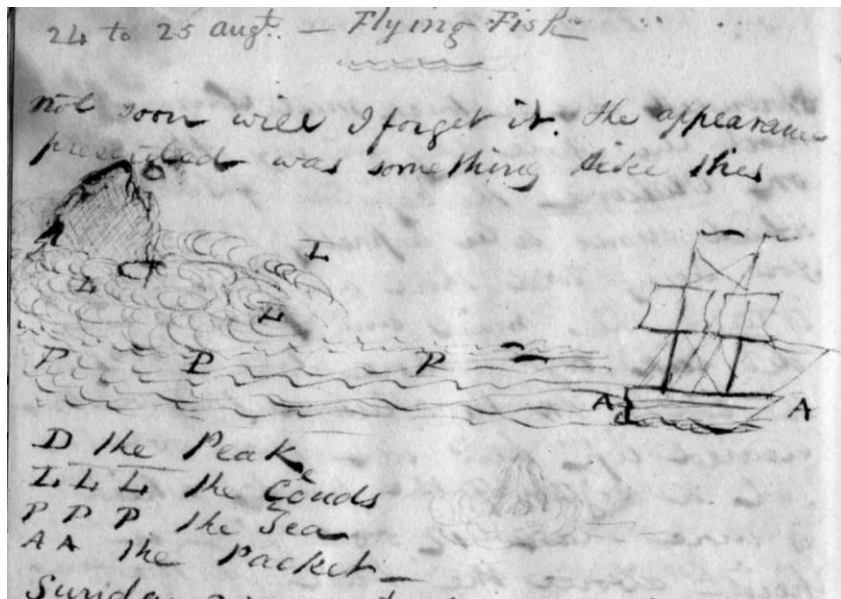 24 to 25 augt. — Flying Fish
not soon will I forget it. The appearance
presented was something like this
D
L
L
L
P P P
A A
D the Peak
L L L the Couds
P P P the Sea
A A the Packet —
Sunday